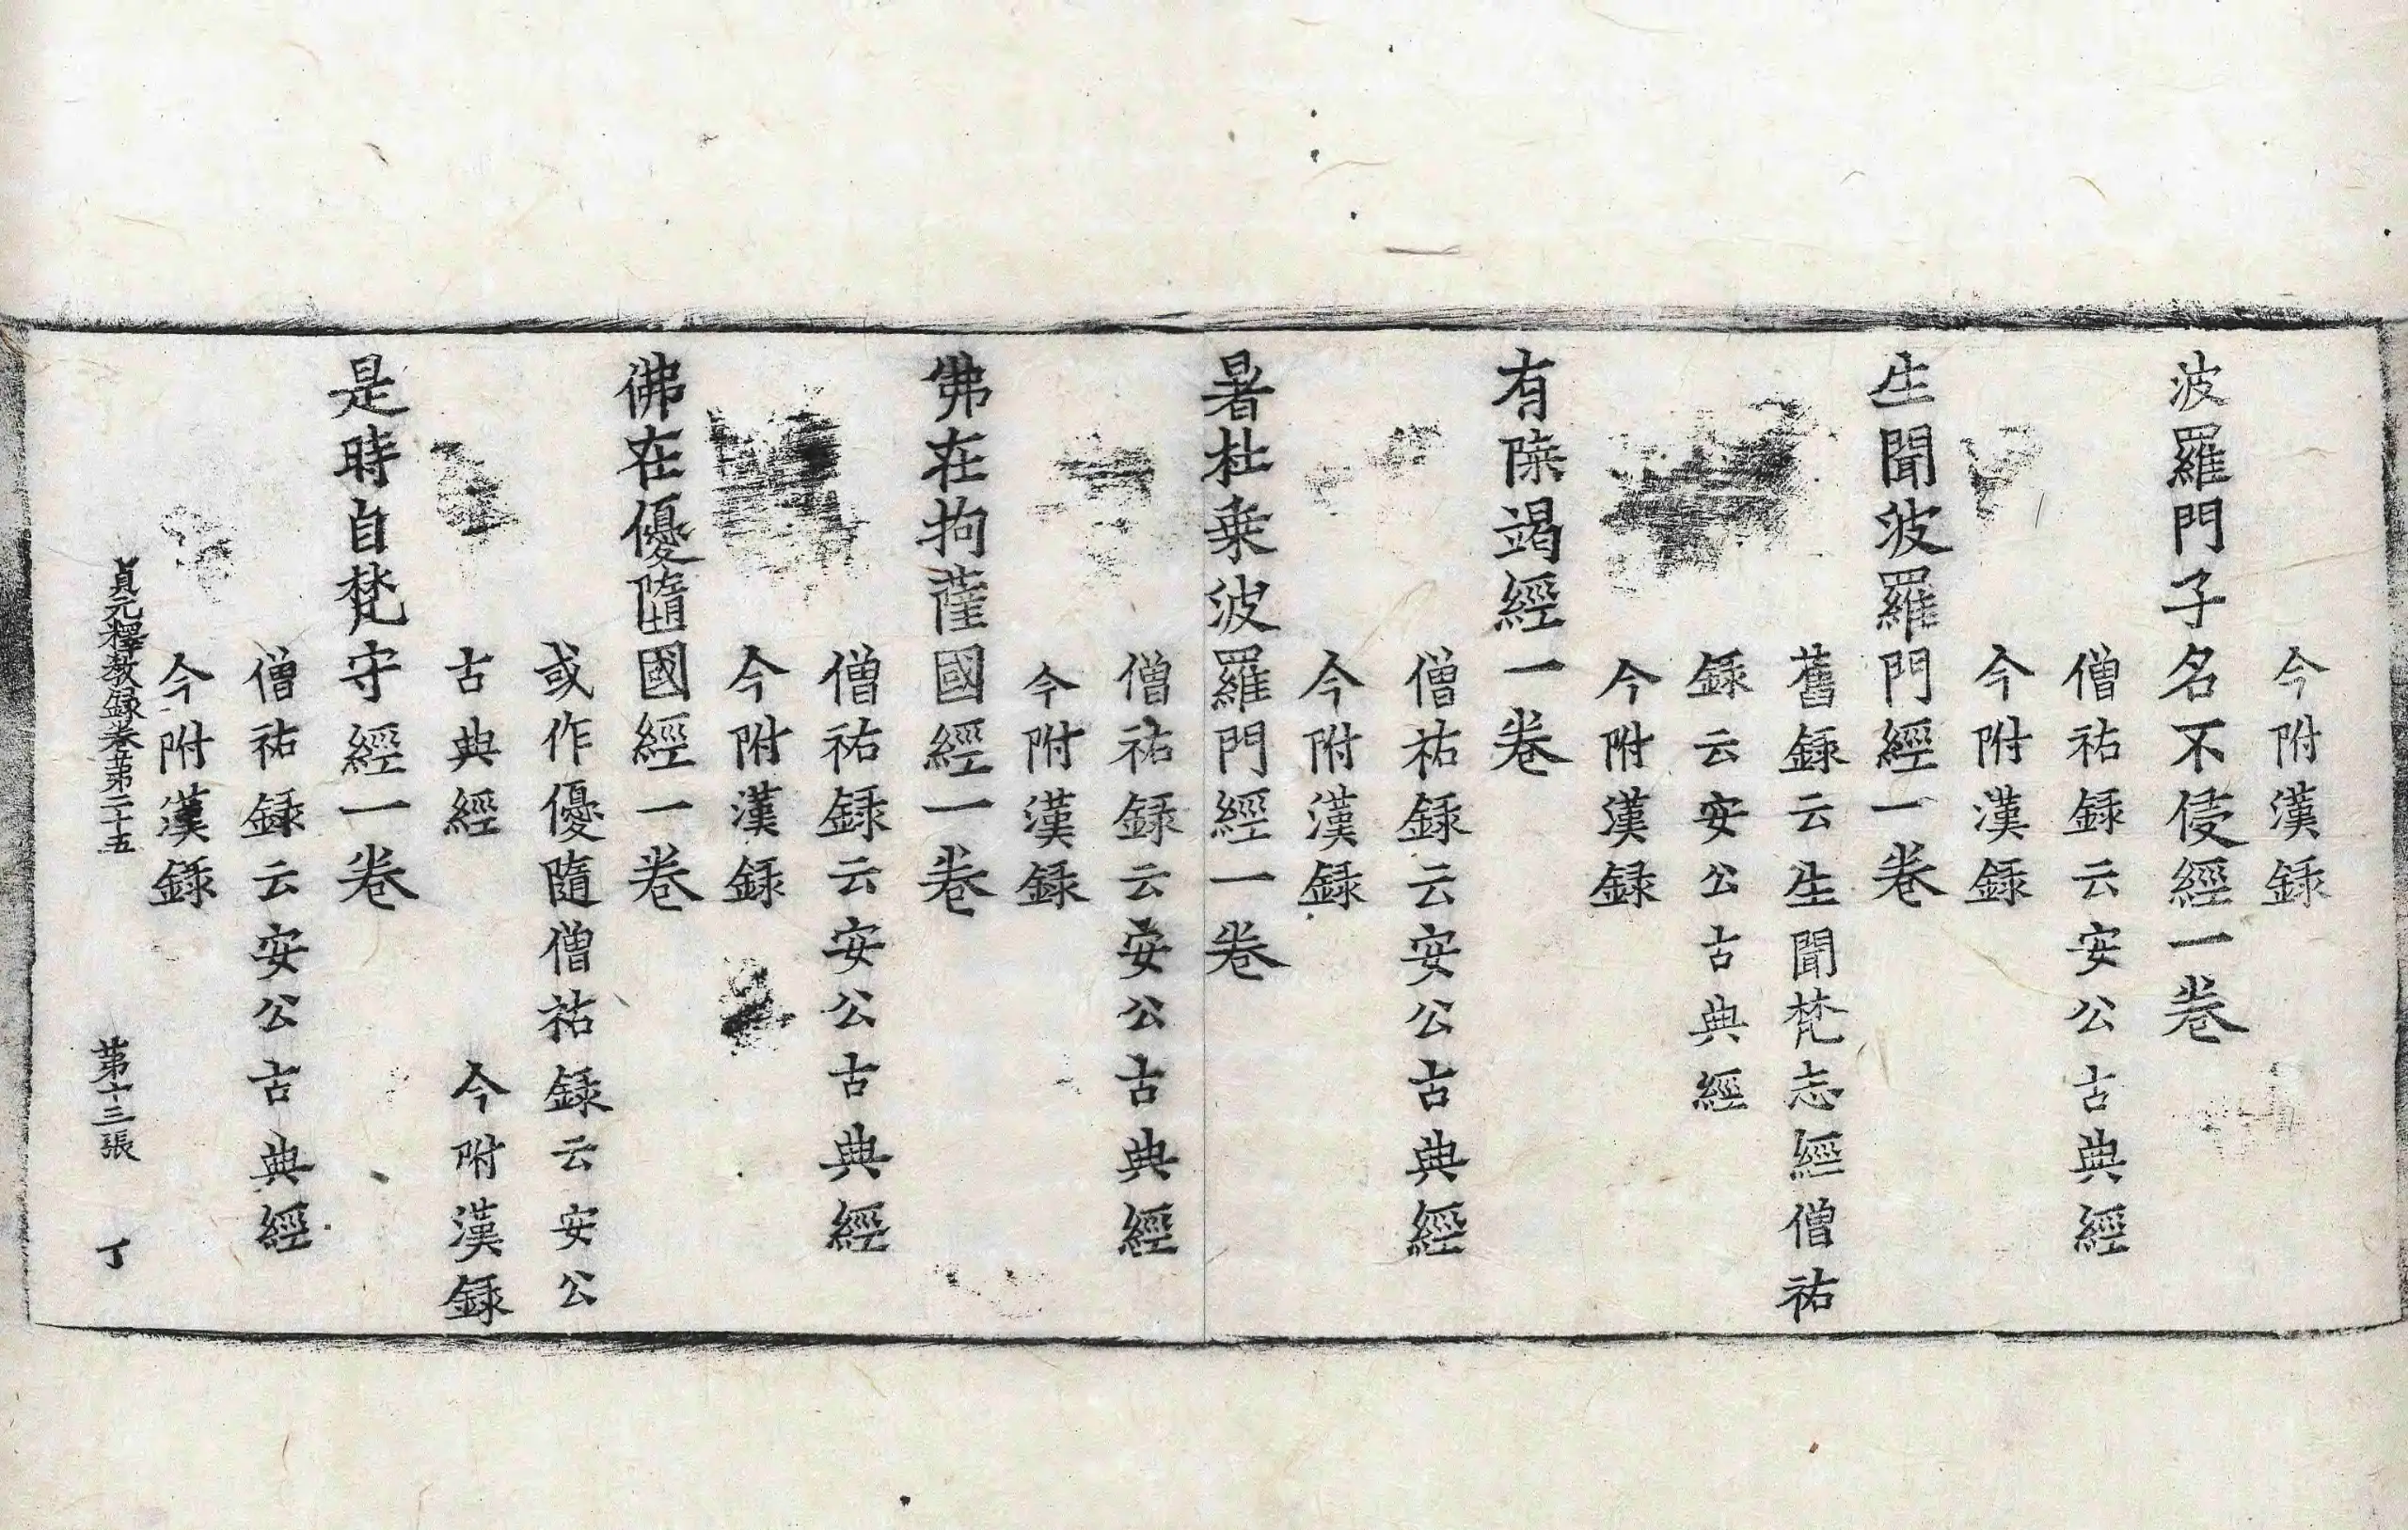 今附漢録
波羅門子名不侵經一卷
僧祐録云安公古典經
今附漢録
生聞波羅門經一卷
舊録云生聞梵志經僧祐
録云安公古典經
今附漢録
有陳竭經一卷
僧祐録云安公古典經
今附漢録
暑杜乗波羅門經一卷
僧祐録云安公古典經
今附漢録
佛在拘薩國經一卷
僧祐録云安公古典經
今附漢録
佛在優墮國經一卷
或作優隨僧祐録云安公
古典經 今附漢録
是時自梵守經一卷
僧祐録云安公古典經
今附漢録
貞元釋教録卷苐二十五 苐十三張 丁